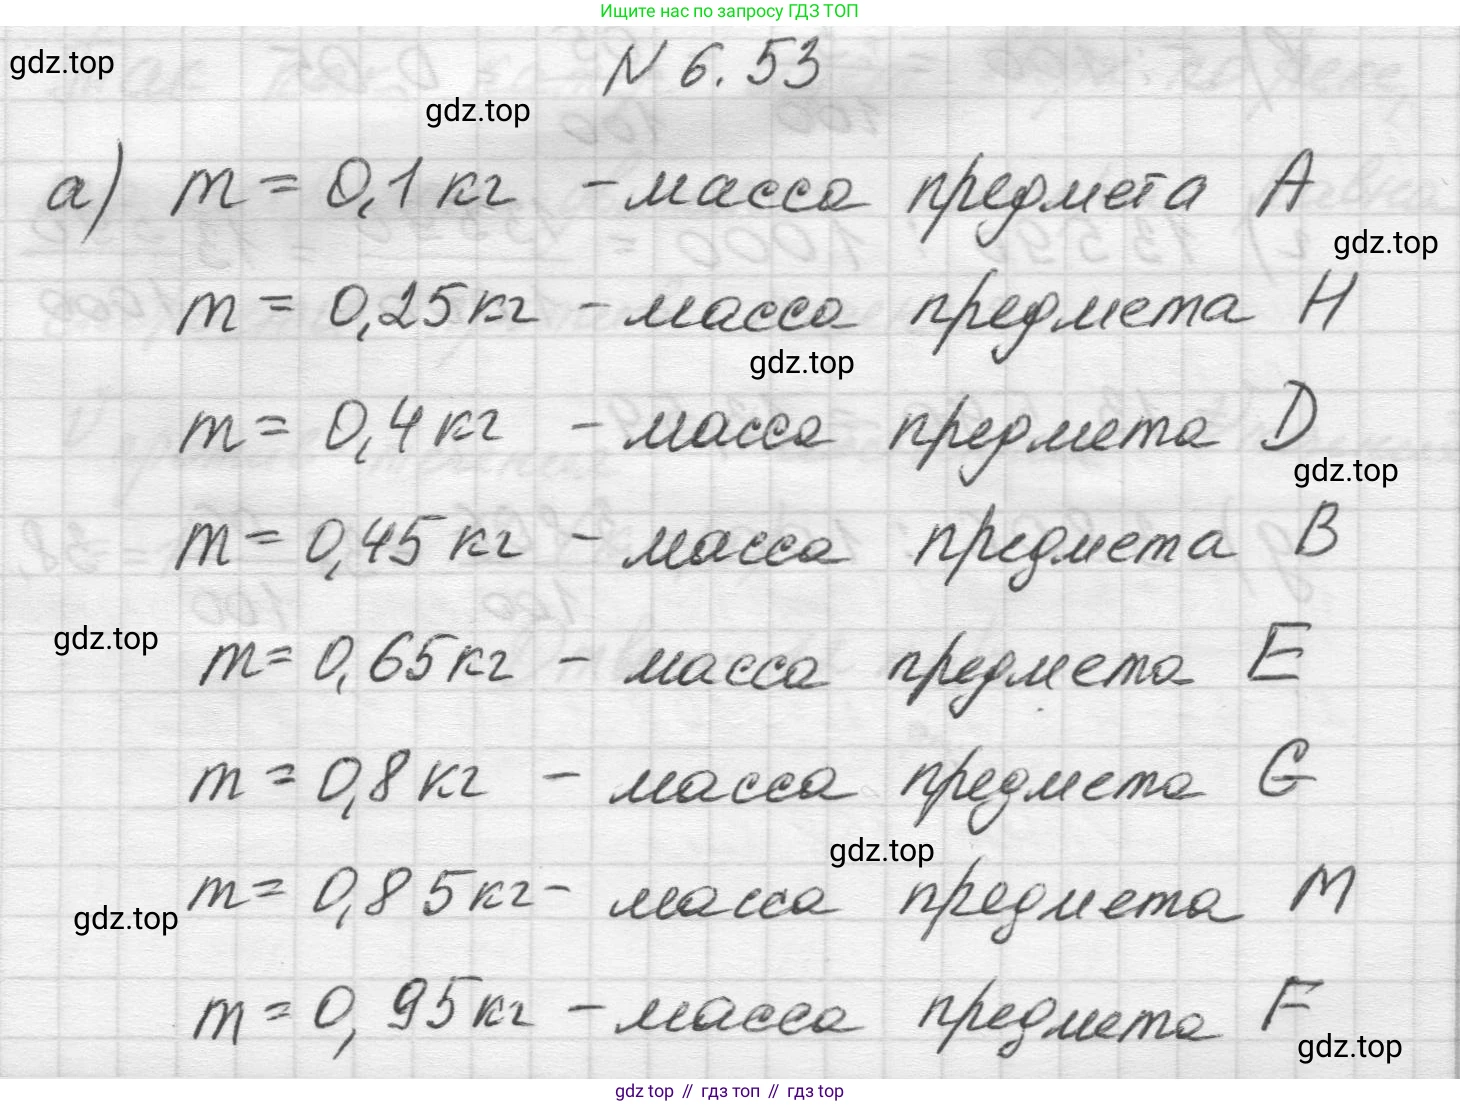 Ищите нас по запросу ГДЗ ТОП
N 6.53
gdz.top
gdz.top
а) m = 0,1 кг – масса предмета A
gdz.top
m = 0,25 кг – масса предмета H
gdz.top
m = 0,4 кг – масса предмета D
gdz.top
m = 0,45 кг – масса предмета B
gdz.top
m = 0,65 кг – масса предмета E
m = 0,8 кг – масса предмета G
gdz.top
m = 0,85 кг – масса предмета M
gdz.top
m = 0,95 кг – масса предмета F
gdz.top
gdz top // гдз топ // gdz top